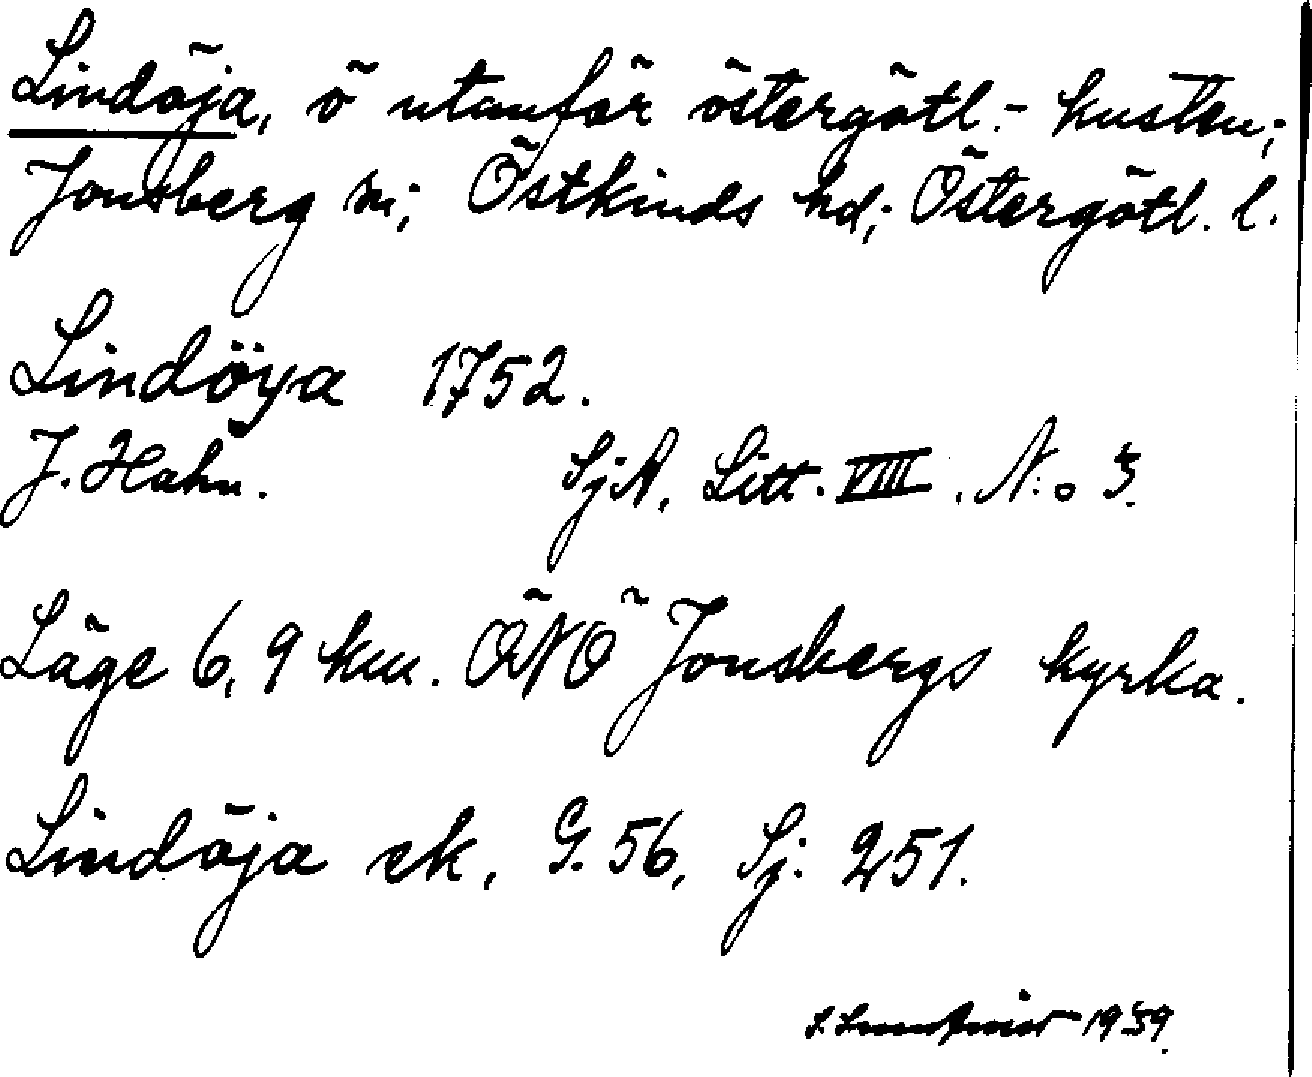 Lindöja, ö utanför östergötl.- kusten;
Jonsberg sn; Östkinds hd; Östergötl. l.
Lindöya 1752.
J. Hahn. SjA, Litt. VIII. N:o 3.
Läge 6,9 km. ÖNÖ Jonsbergs kyrka.
Lindöja ek, G. 56, Sj. 251.
1939.